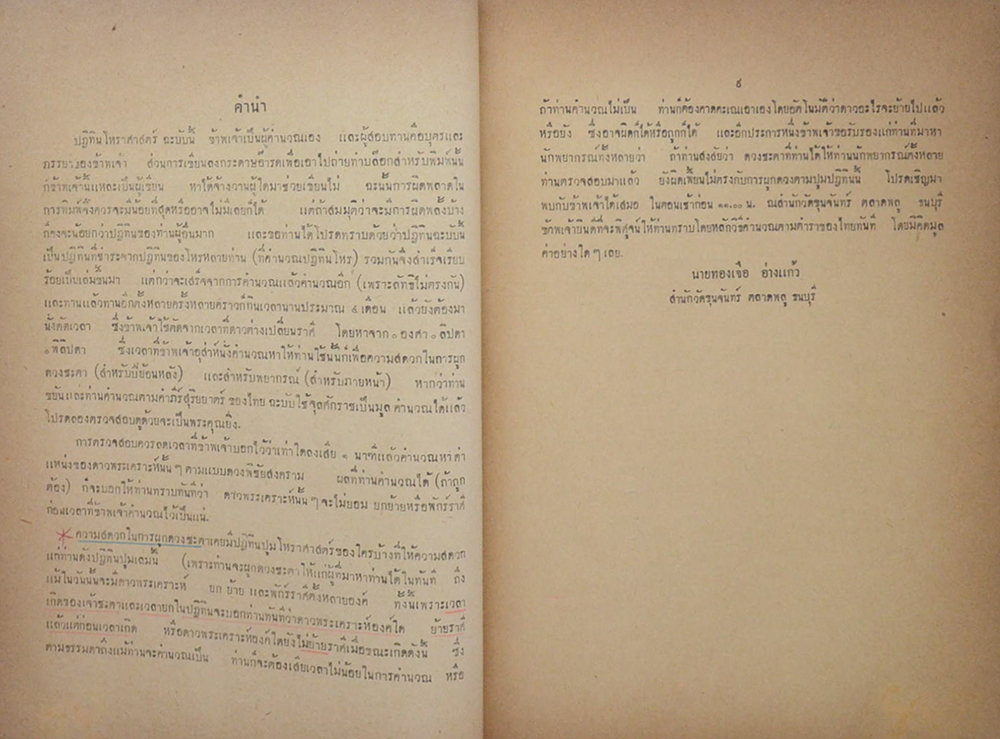 คำนำ
ปฏิทินโหราศาสตร์ ฉะบับนี้ ข้าพเจ้าเป็นผู้คำนวณเอง และผู้สอบทานคือบุตรและ
ภรรยาของข้าพเจ้า ส่วนการเขียนลงกระดาษอ๊าร์ตเพื่อเอาไปถ่ายทำบล๊อกสำหรับพิมพ์นั้น
ก็ข้าพเจ้านี้แหละเป็นผู้เขียน หาได้จ้างวานผู้ใดมาช่วยเขียนไม่ ฉะนั้นการผิดพลาดใน
การพิมพ์จึงควรจะมีน้อยที่สุดหรืออาจไม่มีเลยก็ได้ แต่ถ้าสมมุติว่าจะมีการผิดพลั้งบ้าง
ก็คงจะน้อยกว่าปฏิทินของท่านผู้อื่นมาก และขอท่านได้โปรดทราบด้วยว่าปฏิทินฉะบับนี้
เป็นปฏิทินที่ชำระจากปฏิทินของโหรหลายท่าน (ที่คำนวณปฏิทินโหร) รวมกันจึงสำเร็จเรียบ
ร้อยเป็นเล่มขึ้นมา แต่กว่าจะเสร็จจากการคำนวณแล้วคำนวณอีก (เพราะลัทธิไม่ตรงกัน)
และทานแล้วทานอีกตั้งหลายครั้งหลายคราวก็กินเวลานานประมาณ ๕ เดือน แล้วยังต้องมา
นั่งตัดเวลา ซึ่งข้าพเจ้าใช้ตัดจากเวลาที่ดาวต่างเปลี่ยนราศี โดยหาจาก ๐ องศา ๐ ลิปดา
๐ พิลิปดา ซึ่งเวลาที่ข้าพเจ้าอุส่าห์นั่งคำนวณหาให้ท่านใช้นั้นก็เพื่อความสดวกในการผูก
ดวงชะตา (สำหรับปีย้อนหลัง) และสำหรับพยากรณ์ (สำหรับภายหน้า) หากว่าท่าน
ขยันและท่านคำนวณตามคำภีร์สุริยยาตร์ ของไทย ฉะบับใช้จุลศักราชเป็นมูล คำนวณได้แล้ว
โปรดลองตรวจสอบดูด้วยจะเป็นพระคุณยิ่ง.
การตรวจสอบควรลดเวลาที่ข้าพเจ้าบอกไว้ว่าเท่าใดลงเสีย ๑ นาฑีแล้วคำนวณหาตำ
แหน่งของดาวพระเคราะห์นั้น ๆ ตามแบบดวงพิชัยสงคราม ผลที่ท่านคำนวณได้ (ถ้าถูก
ต้อง) ก็จะบอกให้ท่านทราบทันทีว่า ดาวพระเคราะห์นั้น ๆ จะไม่ยอม ยกย้ายหรือพักร์ราศี
ก่อนเวลาที่ข้าพเจ้าคำนวณไว้เป็นแน่.
ความสดวกในการผูกดวงชะตาเคยมีปฏิทินปูมโหราศาสตร์ของใครบ้างที่ให้ความสดวก
แก่ท่านดังปฏิทินปูมเล่มนี้ (เพราะท่านจะผูกดวงชะตาให้แก่ผู้ที่มาหาท่านได้ในทันที ถึง
แม้ในวันนั้นจะมีดาวพระเคราะห์ ยก ย้าย และพักร์ราศีตั้งหลายองค์ ทั้งนี้เพราะเวลา
เกิดของเจ้าชะตาและเวลายกในปฏิทินจะบอกท่านทันทีว่าดาวพระเคราะห์องค์ใด ย้ายราศี
แล้วแต่ก่อนเวลาเกิด หรือดาวพระเคราะห์องค์ใดยังไม่ย้ายราศีเมื่อขณะเกิดดังนี้ ซึ่ง
ตามธรรมดาถึงแม้ท่านจะคำนวณเป็น ท่านก็จะต้องเสียเวลาไม่น้อยในการคำนวณ หรือ
ถ้าท่านคำนวณไม่เป็น ท่านก็ต้องคาดคะเนเอาเองโดยอัตโนมัติว่าดาวอะไรจะย้ายไปแล้ว
หรือยัง ซึ่งอาจผิดก็ได้หรือถูกก็ได้ และอีกประการหนึ่งข้าพเจ้าขอรับรองแก่ท่านที่มาหา
นักพยากรณ์ทั้งหลายว่า ถ้าท่านสงสัยว่า ดวงชะตาที่ท่านได้ให้ท่านนักพยากรณ์ทั้งหลาย
ท่านตรวจสอบมาแล้ว ยังผิดเพี้ยนไม่ตรงกับการผูกดวงตามปูมปฏิทินนี้ โปรดเชิญมา
พบกับข้าพเจ้าได้เสมอ ในตอนเช้าก่อน ๑๑.๐๐ น. ณสำนักวัดขุนจันทร์ ตลาดพลู ธนบุรี
ข้าพเจ้ายินดีที่จะพิศูจน์ให้ท่านทราบโดยหลักวิธีคำนวณตามตำราของไทยทันที โดยมิคิดมูล
ค่าอย่างใด ๆ เลย.
นายทองเจือ อ่างแก้ว
สำนักวัดขุนจันทร์ ตลาดพลู ธนบุรี